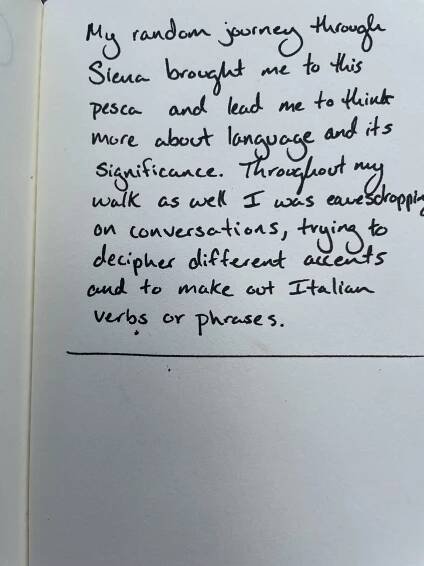 My random journey through
Siena brought me to this
pesca and lead me to think
more about language and its
significance. Throughout my
walk as well I was eavesdropping
on conversations, trying to
decipher different accents
and to make out Italian
verbs or phrases.